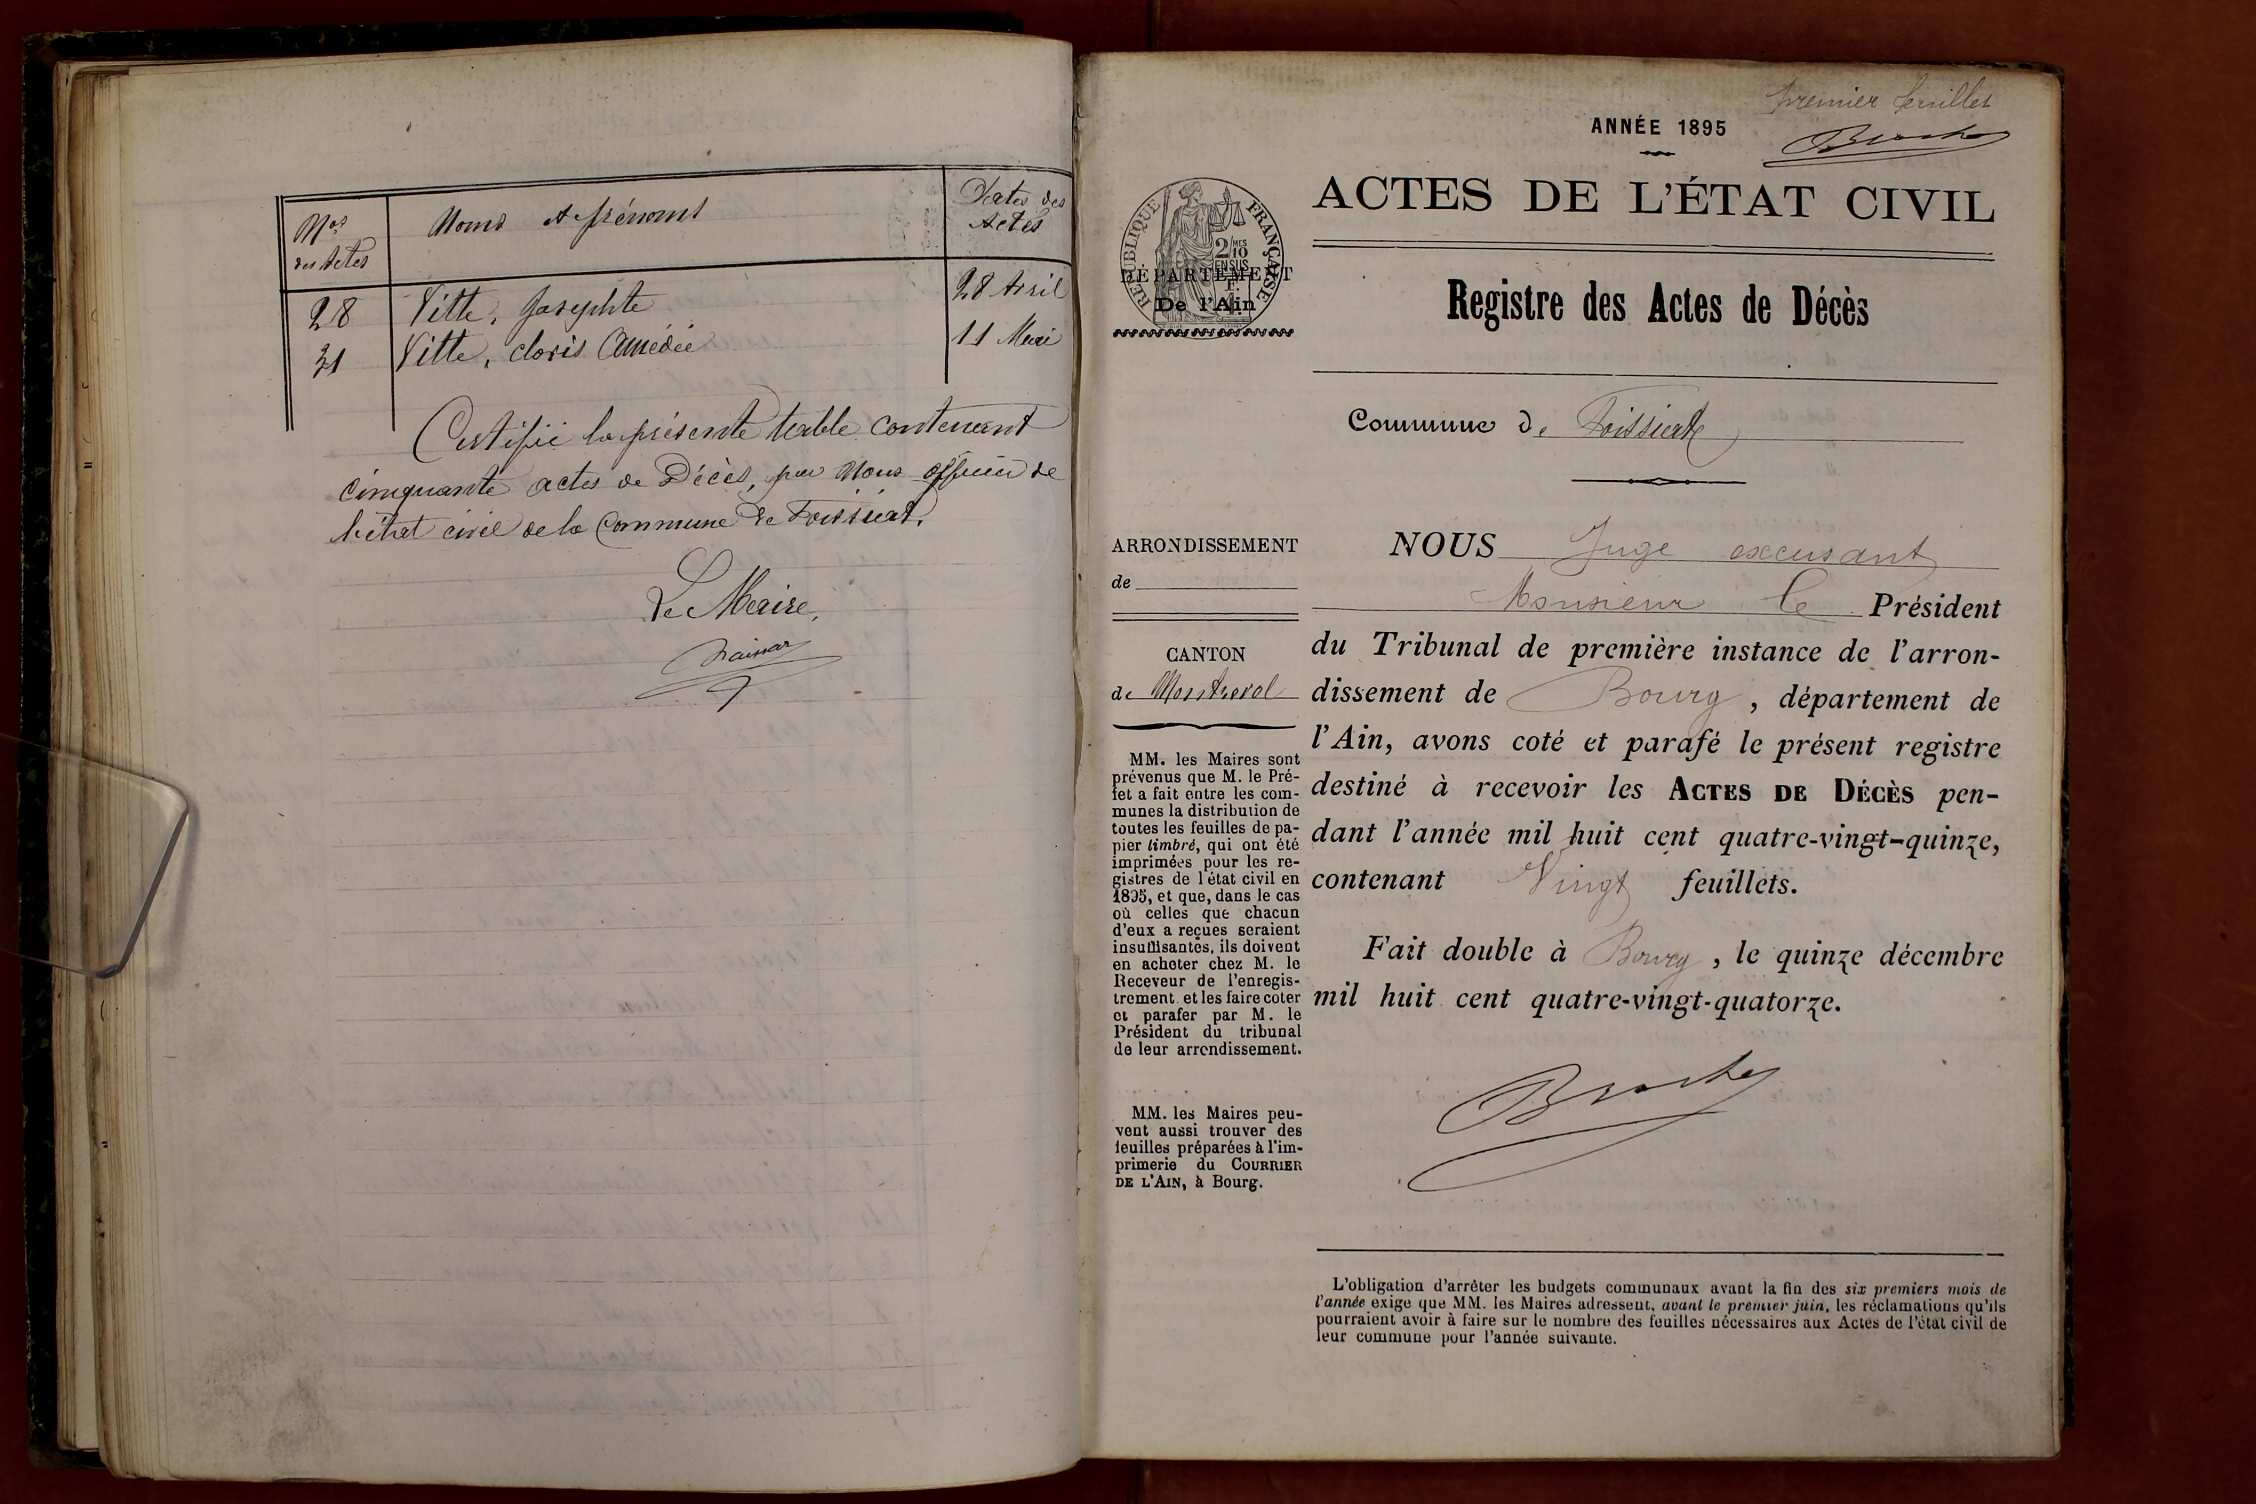 Nos des Actes
Noms et prénoms
Dates des Actes
28 Vitte, Josephte 28 Avril
31 Vitte, cloris Amédée 11 Mai
Certifié la présente table contenant
cinquante actes de Décès, par Nous officier de
l'état civil de la Commune de Foissiat.
Le Maire,
premier feuillet
ANNÉE 1895
ACTES DE L'ÉTAT CIVIL
RÉPUBLIQUE FRANÇAISE
2/10 MES
EN SUS
DÉPARTEMENT
De l'Ain
Registre des Actes de Décès
Commune de Foissiat
ARRONDISSEMENT
de
CANTON
de Montrevel
MM. les Maires sont
prévenus que M. le Pré-
fet a fait entre les com-
munes la distribution de
toutes les feuilles de pa-
pier timbré, qui ont été
imprimées pour les re-
gistres de l'état civil en
1895, et que, dans le cas
où celles que chacun
d'eux a reçues seraient
insuffisantes, ils doivent
en acheter chez M. le
Receveur de l'enregis-
trement et les faire coter
et parafer par M. le
Président du tribunal
de leur arrondissement.
MM. les Maires peu-
vent aussi trouver des
feuilles préparées à l'im-
primerie du COURRIER
DE L'AIN, à Bourg.
NOUS Juge excusant
Monsieur le Président
du Tribunal de première instance de l'arron-
dissement de Bourg, département de
l'Ain, avons coté et parafé le présent registre
destiné à recevoir les ACTES DE DÉCÈS pen-
dant l'année mil huit cent quatre-vingt-quinze,
contenant Vingt feuillets.
Fait double à Bourg, le quinze décembre
mil huit cent quatre-vingt-quatorze.
L'obligation d'arrêter les budgets communaux avant la fin des six premiers mois de
l'année exige que MM. les Maires adressent, avant le premier juin, les réclamations qu'ils
pourraient avoir à faire sur le nombre des feuilles nécessaires aux Actes de l'état civil de
leur commune pour l'année suivante.